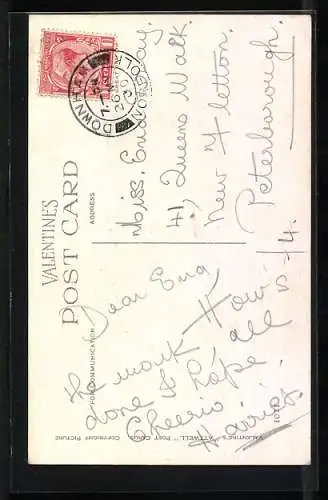 VALENTINE'S
POST CARD
FOR COMMUNICATION
ADDRESS
DOWNHAM
NORFOLK
Dear Ena
How's
the work all
done I hope.
Cheerio
Harriet
Miss.
41, Queens Walk
New Fletton.
Peterborough
VALENTINE'S "ATTWELL" POST CARD. COPYRIGHT PICTURE